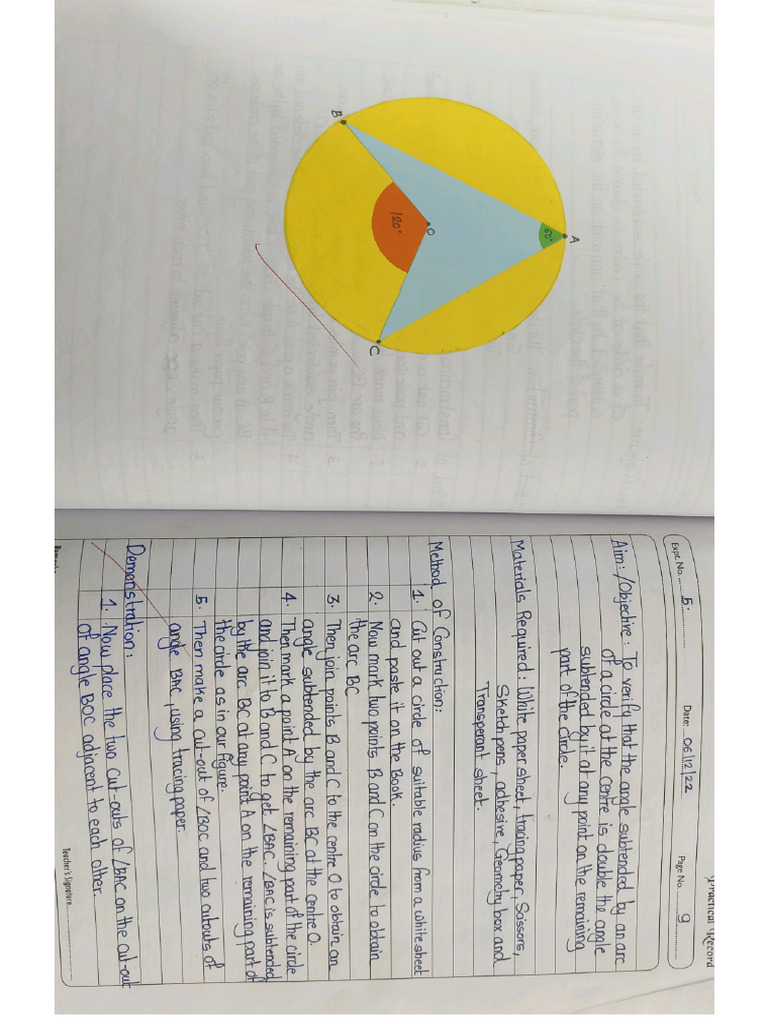 B
120°
O
60°
A
C
Practical Record
Expt. No. 5.
Date: 06/12/22
Page No. 9
Aim:/Objective: To verify that the angle subtended by an arc
of a circle at the centre is double the angle
subtended by it at any point on the remaining
part of the circle.
Materials Required: White paper sheet, tracing paper, Sassors,
Sketch pens, adhesive, Geometry box and
Transperant sheet.
Method of Construction:
1. Cut out a circle of suitable radius from a white sheet
and paste it on the Book.
2. Now mark two points B and C on the circle to obtain
the arc BC
3. Then join points B and C to the centre O to obtain an
angle subtended by the arc BC at the centre O.
4. Then mark a point A on the remaining part of the circle
and join it to B and C to get ∠BAC. ∠BAC is subtended
by the arc BC at any point A on the remaining part of
the circle as in our figure.
5. Then make a cut-out of ∠BOC and two cutouts of
angle BAC, using tracing paper.
Demonstration:
1. Now place the two cut-outs of ∠BAC on the cut-out
of angle BOC adjacent to each other.
Teacher's Signature